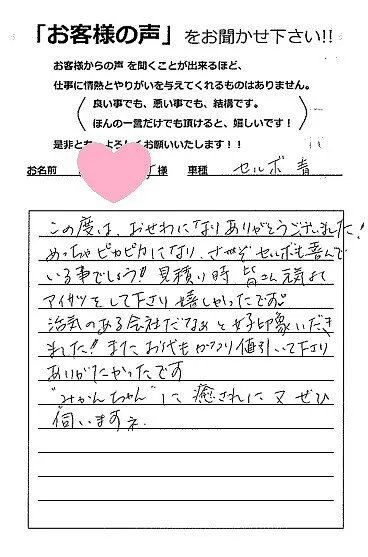 「お客様の声」をお聞かせ下さい!!
お客様からの声 を聞くことが出来るほど、
仕事に情熱とやりがいを与えてくれるものはありません。
良い事でも、悪い事でも、結構です。
ほんの一言だけでも頂けると、嬉しいです！
是非とも よろしくお願いいたします！！
お名前 様 車種 セルボ 青
この度は、おせわになりありがとうございました!
めっちゃピカピカになり、さぞぞセルボも喜んで
いる事でしょう!! 見積り時 皆さん元気よく
アイサツをして下さり 嬉しかったです。
活気のある会社だなぁと好印象いだき
ました!! また お代も ガッツリ値引いて下さり
ありがたかったです
"みかんちゃん"に 癒されに 又 ぜひ
伺いますネ.